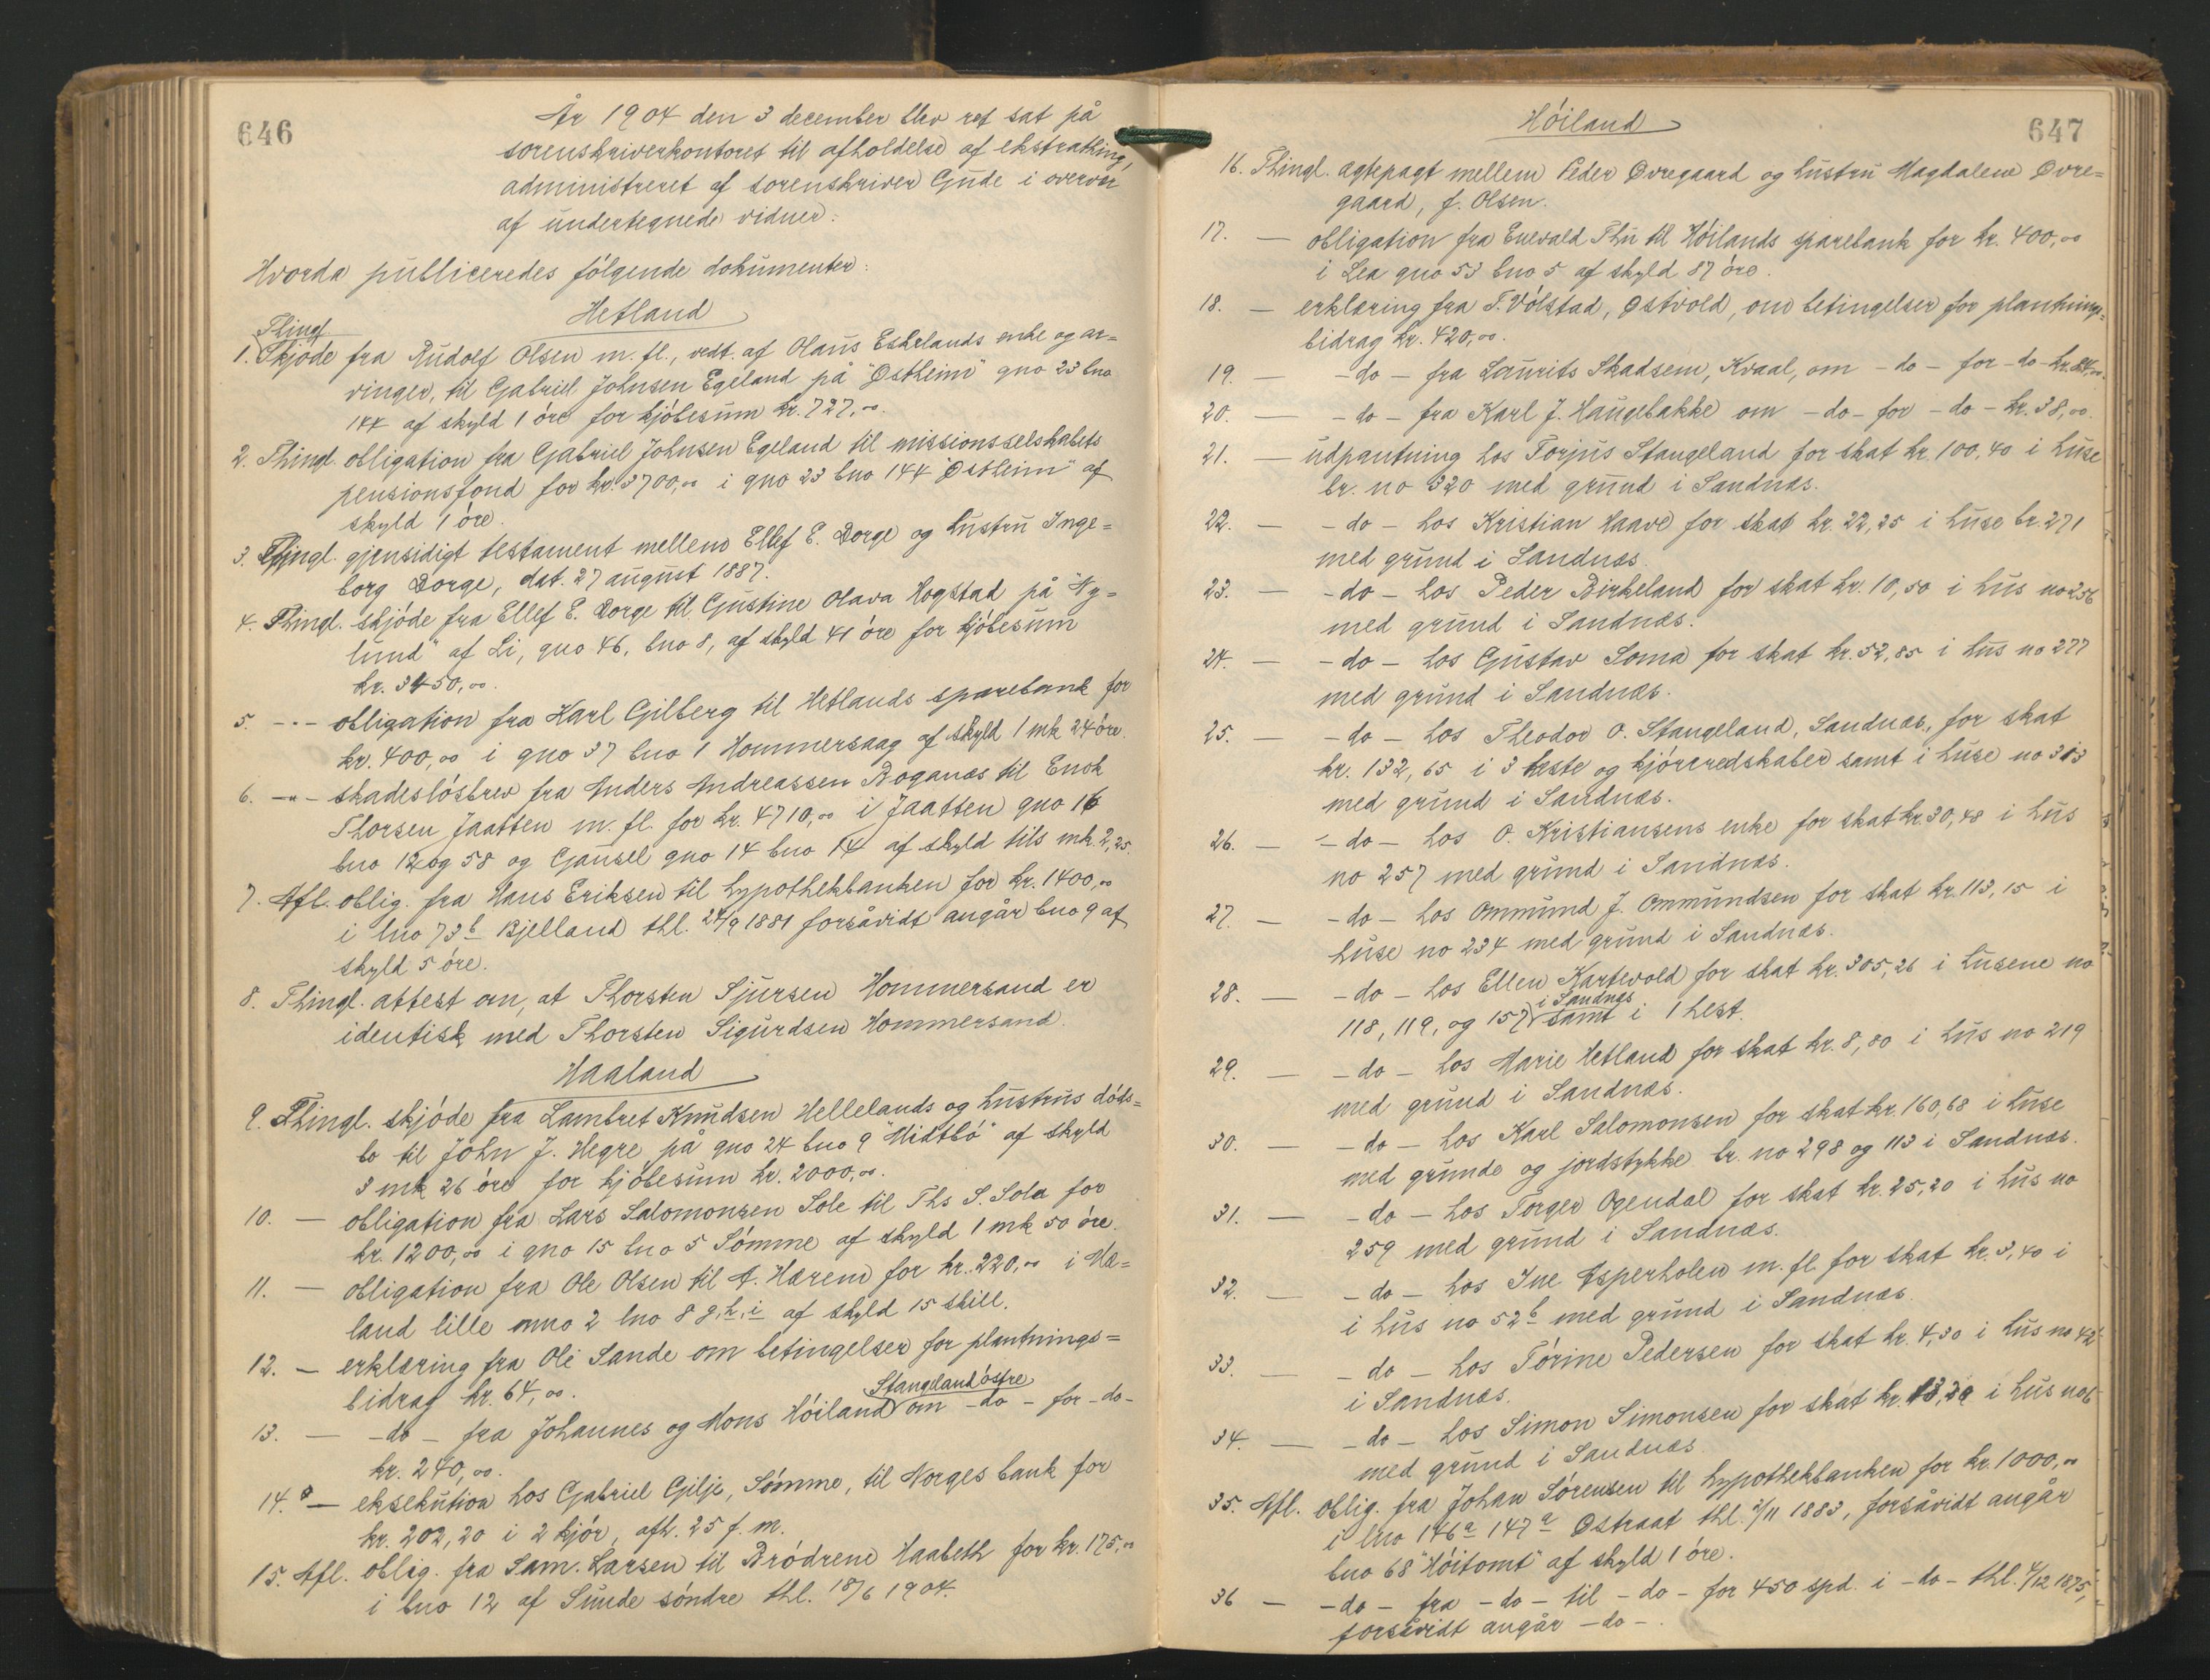 646
År 1904 den 3 december blev ret sat på
sorenskriverkontoret til afholdelse af ekstrathing,
administreret af sorenskriver Gude i overvær
af undertegnede vidner:
Hvorda publiceredes følgende dokumenter:
Hetland
Thingl
1. Skjøde fra Rudolf Olsen m. fl., vedt. af Olaus Eskelands enke og ar=
vinger, til Gabriel Johnsen Egeland på "Østheim" gno 23 bno
144 af skyld 1 øre for kjøbesum kr. 727,00.
2. Thingl. obligation fra Gabriel Johnsen Egeland til missionsselskabets
pensionsfond for kr. 3700,00 i gno 23 bno 144 "Østheim" af
skyld 1 øre.
3. Thingl. gjensidigt testament mellem Ellef E. Dorge og hustru Inge=
borg Dorge, dat. 27 august 1887.
4. Thingl. skjøde fra Ellef E. Dorge til Gustine Olava Hogstad på "Ny=
lund" af Li, gno 46, bno 8, af skyld 41 øre for kjøbesum
kr. 3450,00.
5. -"- obligation fra Karl Gilberg til Hetlands sparebank for
kr. 400,00 i gno 37 bno 1 Hommersaag af skyld 1 mk 24 øre.
6. -"- skadesløsbrev fra Anders Andreassen Boganæs til Enok
Thorsen Jaatten m. fl. for kr. 4710,00 i Jaatten gno 16
bno 12 og 58 og Gausel gno 14 bno 14 af skyld tils mk. 2,25.
7. Afl. oblig. fra Hans Eriksen til hypothekbanken for kr. 1400,00
i lno 73b Bjelland thl. 24/9 1881 forsåvidt angår bno 9 af
skyld 5 øre.
8. Thingl. attest om, at Thorsten Sjursen Hommersand er
identisk med Thorsten Sigurdsen Hommersand.
Haaland
9. Thingl. skjøde fra Lambret Knudsen Hellelands og hustrus døds=
bo til John J. Hegre på gno 24 bno 9 "Midtbø" af skyld
3 mk 26 øre for kjøbesum kr. 2000,00.
10. — obligation fra Lars Salomonsen Sole til Ths S. Sola for
kr. 1200,00 i gno 15 bno 5 Sømme af skyld 1 mk 50 øre.
11. — obligation fra Ole Olsen til A. Hærem for kr. 220,00 i Hæ=
land lille mno 2 lno 8 g, h, i af skyld 15 skill.
12. — erklæring fra Ole Sande om betingelser for plantnings=
bidrag kr. 64,00.
Stangeland østre
13. — -do- fra Johannes og Mons Høiland om -do- for -do-
kr. 240,00.
14. — eksekution hos Gabriel Gilje, Sømme, til Norges bank for
kr. 202,20 i 2 kjør, afh. 25 f. m.
15. Afl. oblig. fra Sam. Larsen til Brødrene Haabeth for kr. 175,00
i bno 12 af Sunde søndre thl. 18/6 1904.
647
Høiland
16. Thingl. ægtepagt mellem Peder Øvregaard og hustru Magdalene Øvre=
gaard, f. Olsen.
17. — obligation fra Enevald Thu til Høilands sparebank for kr. 400,00
i Lea gno 53 bno 5 af skyld 87 øre.
18. — erklæring fra T. Vølstad, Østvold, om betingelser for plantnings=
bidrag kr. 420,00.
19. — -do- fra Laurits Skadsem, Kvaal, om -do- for -do- kr.
20. — -do- fra Karl J. Haugebakke om -do- for -do- kr. 38,00.
21. — udpantning hos Torjus Stangeland for skat kr. 100,40 i huse
br. no 320 med grund i Sandnæs.
22. — -do- hos Kristian Haave for skat kr. 22,25 i huse br. 271
med grund i Sandnæs.
23. — -do- hos Peder Birkeland for skat kr. 10,50 i hus no 256
med grund i Sandnæs.
24. — -do- hos Gustav Soma for skat kr. 52,85 i hus no 277
med grund i Sandnæs.
25. — -do- hos Theodor O. Stangeland, Sandnæs, for skat
kr. 132,65 i 3 heste og kjøreredskaber samt i huse no 313
med grund i Sandnæs.
26. — -do- hos O. Kristiansens enke for skat kr. 30,48 i hus
no 257 med grund i Sandnæs.
27. — -do- hos Ommund J. Ommundsen for skat kr. 113,15 i
huse no 234 med grund i Sandnæs.
28. — -do- hos Ellen Kartevold for skat kr. 305,26 i husene no
i Sandnæs
118, 119, og 157 samt i 1 hest.
29. — -do- hos Marie Hetland for skat kr. 8,80 i hus no 219
med grund i Sandnæs.
30. — -do- hos Karl Salomonsen for skat kr. 160,68 i huse
med grunde og jordstykke br. no 298 og 113 i Sandnæs.
31. — -do- hos Torger Ogendal for skat kr. 25,20 i hus no
259 med grund i Sandnæs.
32. — -do- hos Ine Asperholen m. fl. for skat kr. 3,40 i
i hus no 52b med grund i Sandnæs.
33. — -do- hos Tørine Pedersen for skat kr. 4,30 i hus no 42
i Sandnæs.
34. — -do- hos Simon Simonsen for skat kr. i hus no 6
med grund i Sandnæs.
35. Afl. oblig. fra Johan Sørensen til hypothekbanken for kr. 1000,00
i lno 146a 147a Østraat thl. 2/11 1883, forsåvidt angår
bno 68 "Høitomt" af skyld 1 øre.
36 — -do- fra -do- til -do- for 450 spd. i -do- thl. 4/12 1875,
forsåvidt angår -do-.